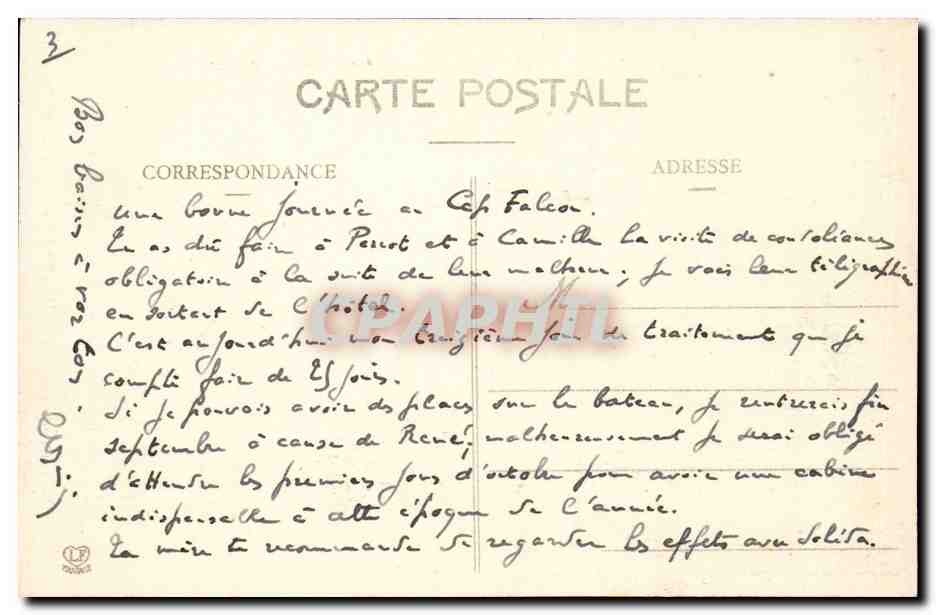 3
CARTE POSTALE
CORRESPONDANCE
ADRESSE
une bonne journée au Cap Falcon.
Tu as dû faire à Perrot et à Camille la visite de condoléances
obligatoire à la suite de leur malheur; je vais leur télégraphier
en sortant de l'hôtel.
C'est aujourd'hui mon treizième jour de traitement que je
compte faire de 25 jours.
Si je pouvais avoir des places sur le bateau, je rentrerais fin
septembre à cause de René; malheureusement je serai obligé
d'attendre les premiers jours d'octobre pour avoir une cabine
indispensable à cette époque de l'année.
Ta mère te recommande de regarder les effets avec Solita.
Bons baisers à vous tous.
CPAPHIL
LF